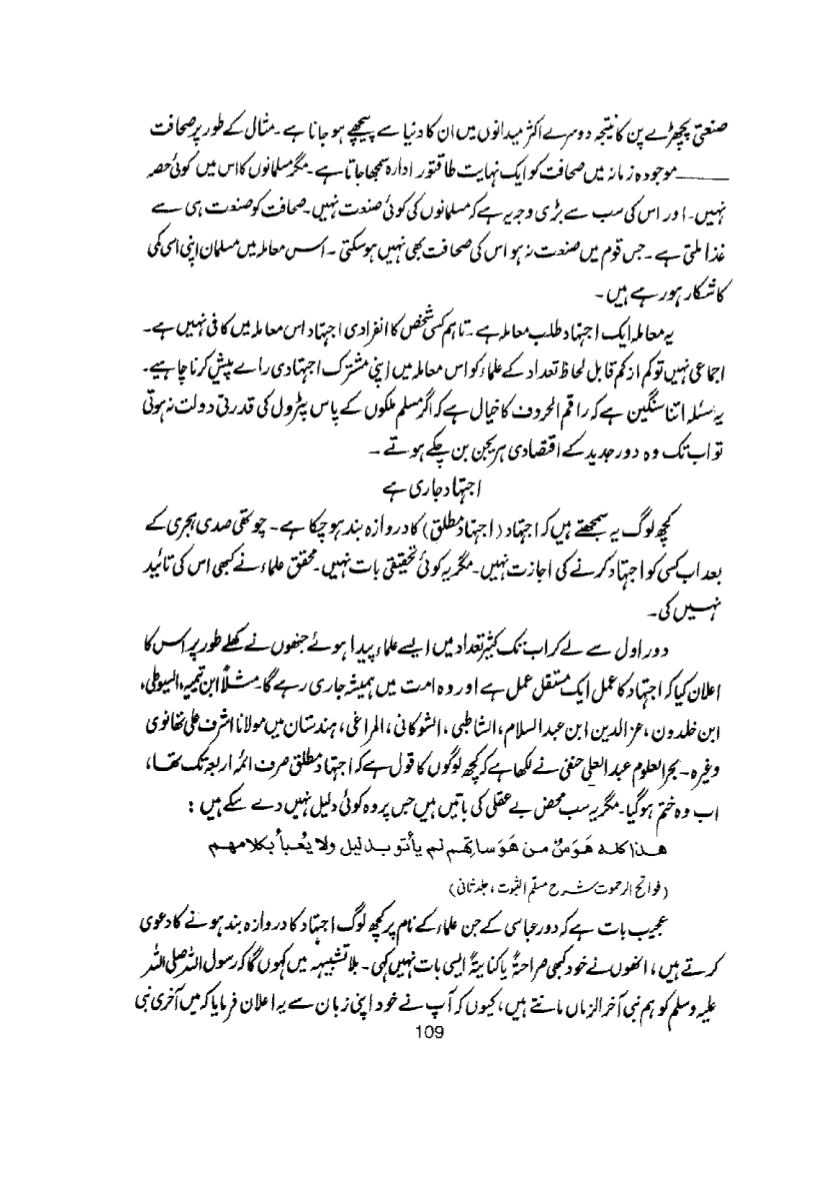 صنعتی پچھڑے پن کا نتیجہ دوسرے اکثر میدانوں میں ان کا دنیا سے پیچھے ہو جانا ہے۔ مثال کے طور پر صحافت
ـــــــ موجودہ زمانہ میں صحافت کو ایک نہایت طاقتور ادارہ سمجھا جاتا ہے۔ مگر مسلمانوں کا اس میں کوئی حصہ
نہیں۔ اور اس کی سب سے بڑی وجہ یہ ہے کہ مسلمانوں کی کوئی صنعت نہیں۔ صحافت کو صنعت ہی سے
غذا ملتی ہے۔ جس قوم میں صنعت نہ ہو اس کی صحافت بھی نہیں ہو سکتی۔ اس معاملہ میں مسلمان اپنی اسی کمی
کا شکار ہو رہے ہیں۔
یہ معاملہ ایک اجتہاد طلب معاملہ ہے۔ تاہم کسی شخص کا انفرادی اجتہاد اس معاملہ میں کافی نہیں ہے۔
اجماعی نہیں تو کم از کم قابل لحاظ تعداد کے علماء کو اس معاملہ میں اپنی مشترک اجتہادی رائے پیش کرنا چاہیے۔
یہ مسئلہ اتنا سنگین ہے کہ راقم الحروف کا خیال ہے کہ اگر مسلم ملکوں کے پاس پٹرول کی قدرتی دولت نہ ہوتی
تو اب تک وہ دور جدید کے اقتصادی ہریجن بن چکے ہوتے۔
اجتہاد جاری ہے
کچھ لوگ یہ سمجھتے ہیں کہ اجتہاد (اجتہاد مطلق) کا دروازہ بند ہو چکا ہے۔ چوتھی صدی ہجری کے
بعد اب کسی کو اجتہاد کرنے کی اجازت نہیں۔ مگر یہ کوئی تحقیقی بات نہیں۔ محقق علماء نے کبھی اس کی تائید
نہیں کی۔
دور اول سے لے کر اب تک کثیر تعداد میں ایسے علماء پیدا ہوئے جنھوں نے کھلے طور پر اس کا
اعلان کیا کہ اجتہاد کا عمل ایک مستقل عمل ہے اور وہ امت میں ہمیشہ جاری رہے گا۔ مثلاً ابن تیمیہ، السیوطی،
ابن خلدون، عز الدین ابن عبد السلام، الشاطبی، الشوکانی، المراغی، ہندستان میں مولانا اشرف علی تھانوی
وغیرہ۔ بحر العلوم عبد العلی حنفی نے لکھا ہے کہ کچھ لوگوں کا قول ہے کہ اجتہاد مطلق صرف ائمہ اربعہ تک تھا،
اب وہ ختم ہو گیا۔ مگر یہ سب محض بے عقلی کی باتیں ہیں جس پر وہ کوئی دلیل نہیں دے سکے ہیں :
هذا كله هَوَسٌ من هَوَساتِهم لم يأتو بدليل ولا يُعبأ بكلامهم
(فواتح الرحموت شرح مسلم الثبوت، جلد ثانی)
عجیب بات ہے کہ دور عباسی کے جن علماء کے نام پر کچھ لوگ اجتہاد کا دروازہ بند ہونے کا دعویٰ
کرتے ہیں، انھوں نے خود کبھی صراحۃً یا کنایۃً ایسی بات نہیں کہی۔ بلا تشبیہہ میں کہوں گا کہ رسول اللہ صلی اللہ
علیہ وسلم کو ہم نبی آخر الزماں مانتے ہیں، کیوں کہ آپ نے خود اپنی زبان سے یہ اعلان فرمایا کہ میں آخری نبی
109